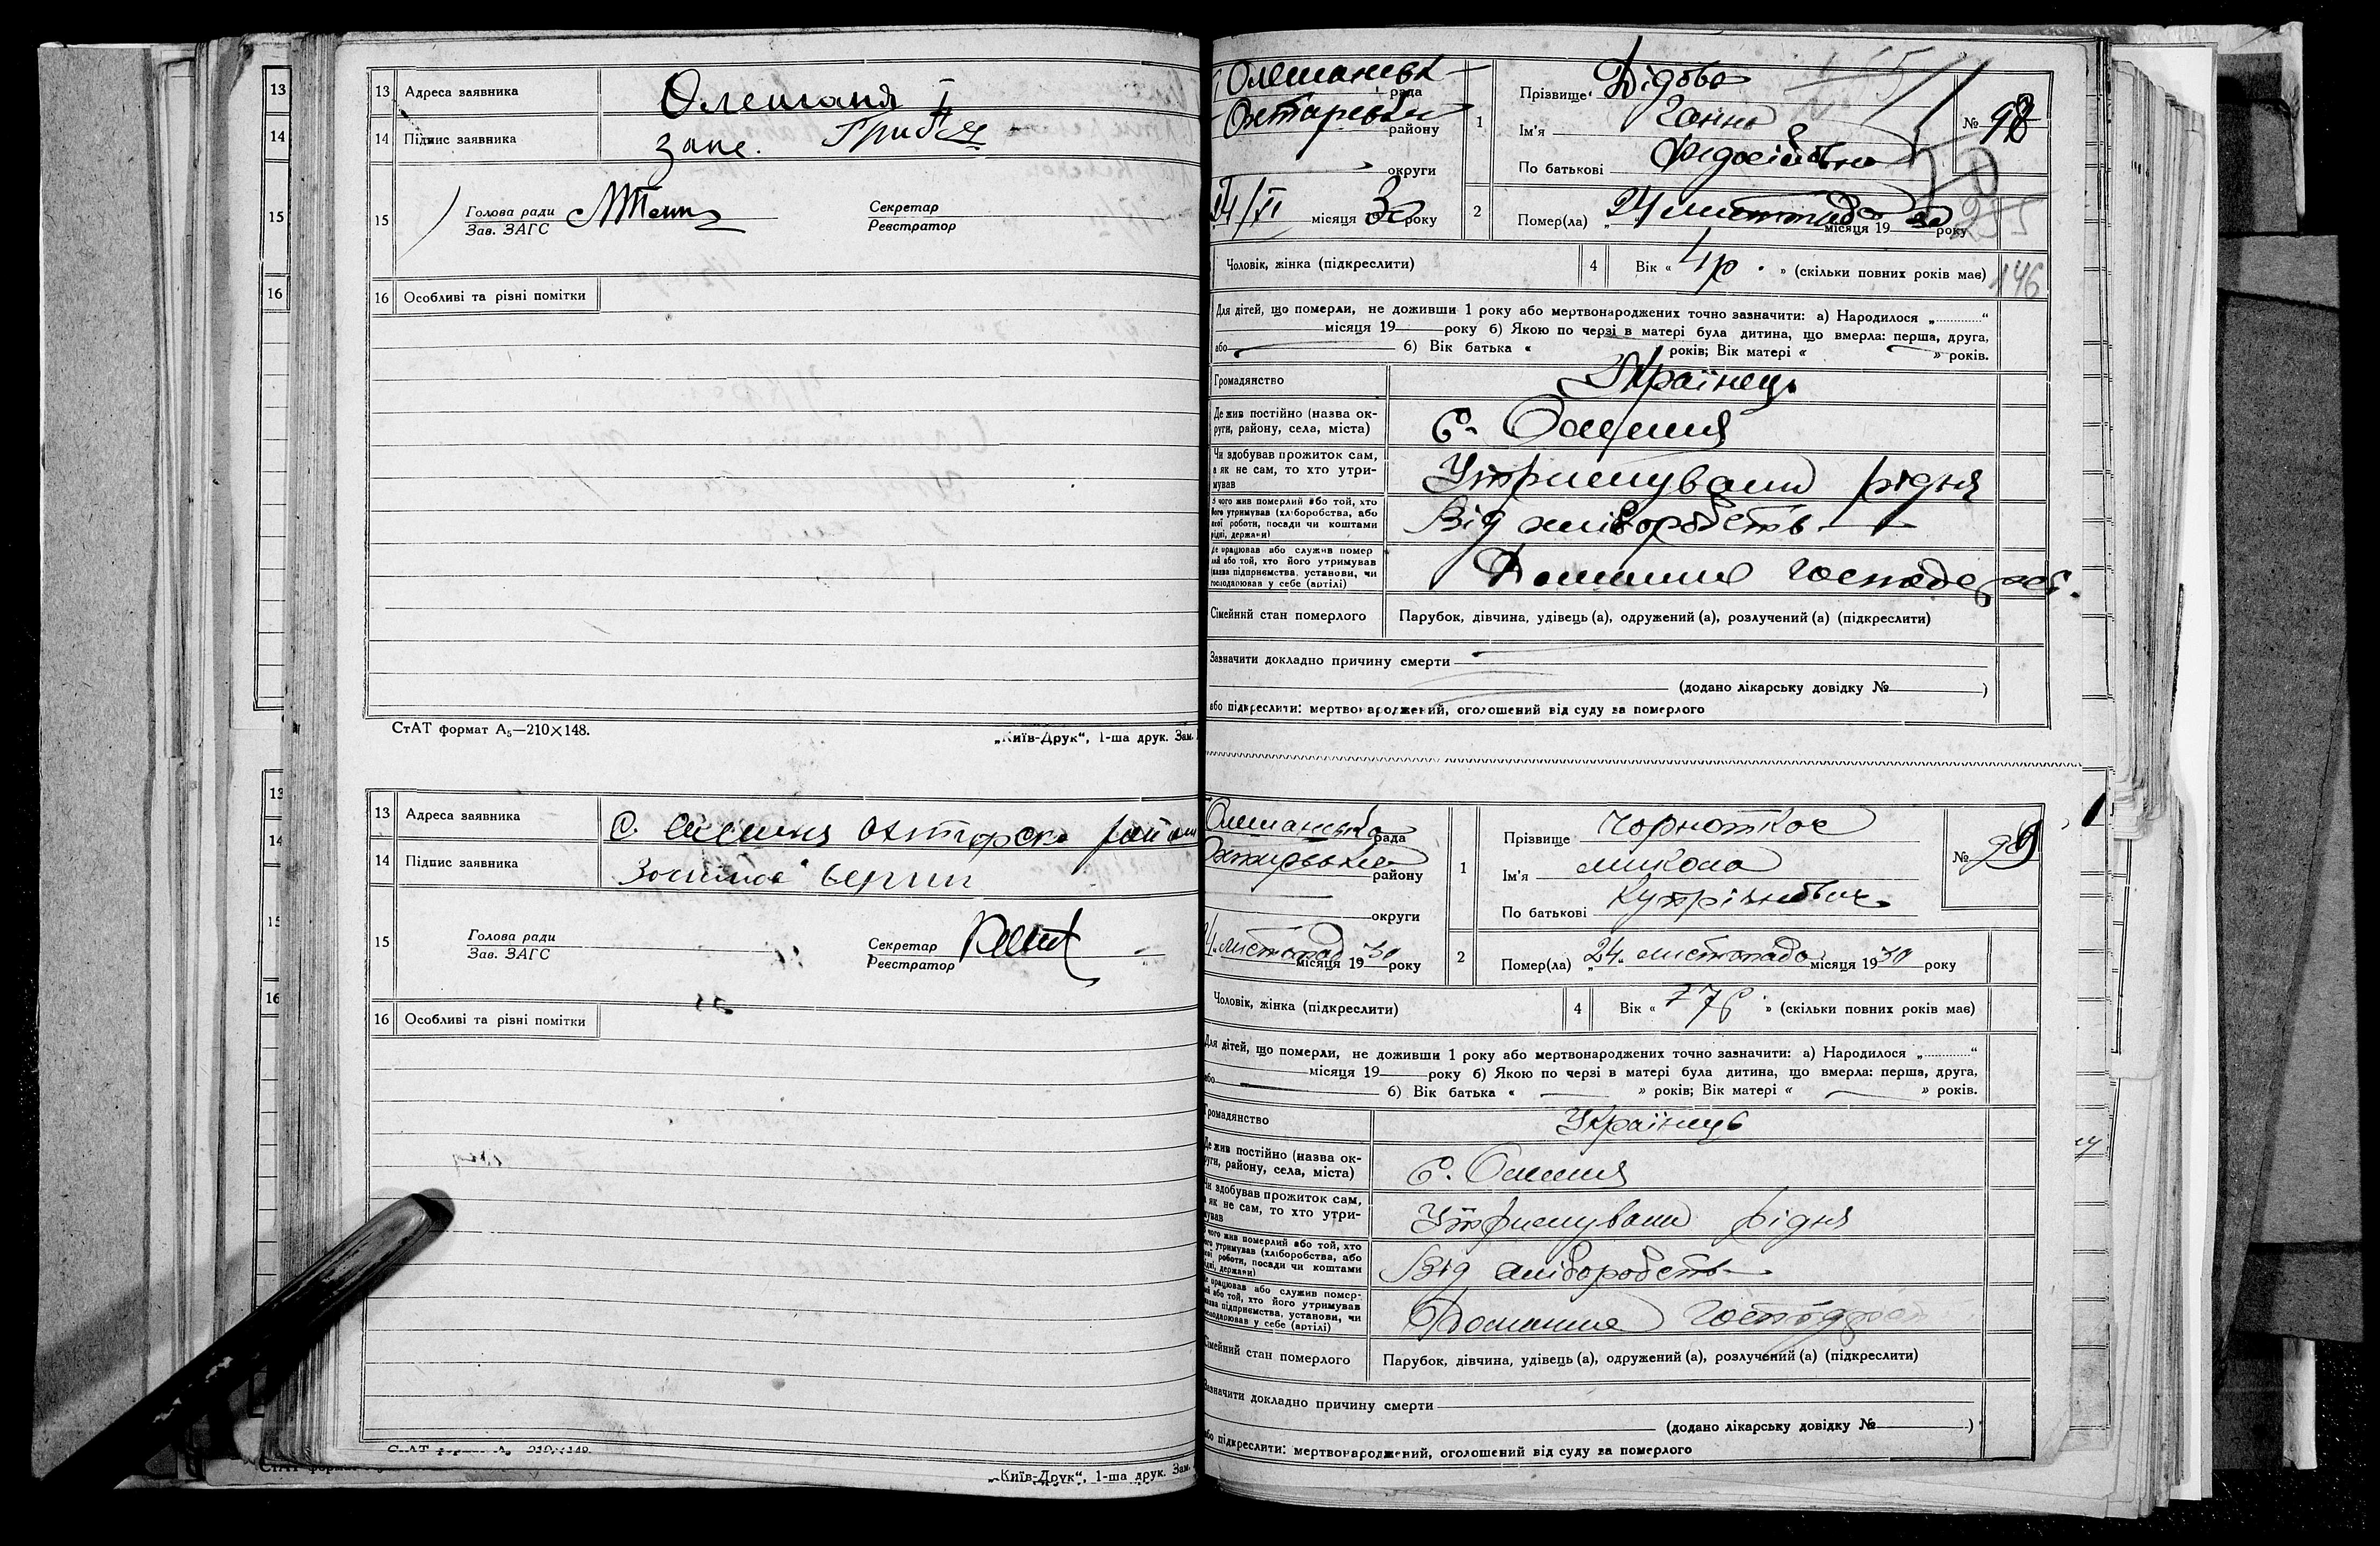 13 Адреса заявника Олешаня I
14 Підпис заявника
15 Голова ради
Зав. ЗАГС
Секретар
Реєстратор
16 Особливі та різні помітки
СтАТ формат А5—210×148.
„Київ-Друк“, 1-ша друк. Зам.
13 Адреса заявника
14 Підпис заявника
15 Голова ради
Зав. ЗАГС
Секретар
Реєстратор
16 Особливі та різні помітки
„Київ-Друк“, 1-ша друк. Зам.
рада
району
округи
24/XI місяця 30 року
1 Прізвище Дідова
Ім'я Ганна
По батькові
№ 98
2 Помер(ла) „24 листопада місяця 19 30 року
Чоловік, жінка (підкреслити)
4 Вік « 4р. » (скільки повних років має)
146
Для дітей, що померли, не доживши 1 року або мертвонароджених точно зазначити: а) Народилося „............“
місяця 19 року б) Якою по черзі в матері була дитина, що вмерла: перша, друга,
або б) Вік батька « років; Вік матері « » років.
Громадянство Українець
Де жив постійно (назва ок-
руги, району, села, міста) С. Олешня
Чи здобував прожиток сам,
а як не сам, то хто утри-
мував Утримували рідня
З чого жив померлий або той, хто
його утримував (хліборобства, або
якої роботи, посади чи коштами
рідні, держави) Від хліборобств
Де працював або служив помер
лий або той, хто його утримував
(назва підприємства, установи, чи
господарював у себе (артілі) Домашнє господарст.
Сімейний стан померлого Парубок, дівчина, удівець (а), одружений (а), розлучений (а) (підкреслити)
Зазначити докладно причину смерти
(додано лікарську довідку № )
або підкреслити: мертвонароджений, оголошений від суду за померлого
рада
району
округи
24 листопад місяця 19 30 року
1 Прізвище
Ім'я микола
По батькові
№ 99
2 Помер(ла) „24 листопада місяця 19 30 року
Чоловік, жінка (підкреслити)
4 Вік « 77р » (скільки повних років має)
Для дітей, що померли, не доживши 1 року або мертвонароджених точно зазначити: а) Народилося „............“
місяця 19 року б) Якою по черзі в матері була дитина, що вмерла: перша, друга,
або б) Вік батька « » років; Вік матері « » років.
Громадянство Українець
Де жив постійно (назва ок-
руги, району, села, міста) С. Олешня
Чи здобував прожиток сам,
а як не сам, то хто утри-
мував Утримували рідня
З чого жив померлий або той, хто
його утримував (хліборобства, або
якої роботи, посади чи коштами
рідні, держави) Від хліборобств
Де працював або служив помер-
лий або той, хто його утримував
(назва підприємства, установи, чи
господарював у себе (артілі) Домашнє господар
Сімейний стан померлого Парубок, дівчина, удівець (а), одружений (а), розлучений (а) (підкреслити)
Зазначити докладно причину смерти
(додано лікарську довідку № )
або підкреслити: мертвонароджений, оголошений від суду за померлого